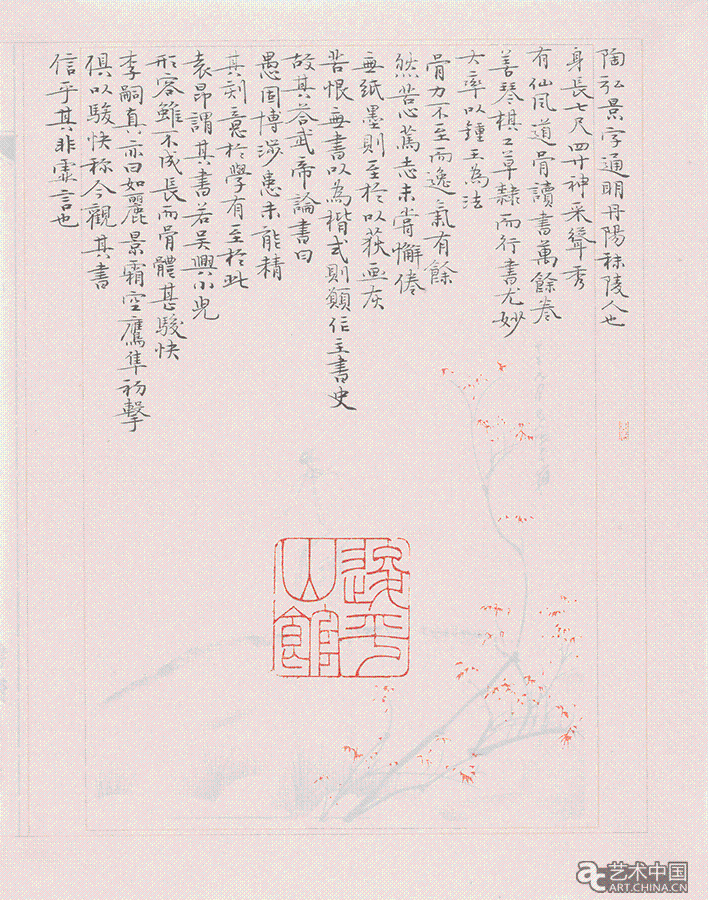 陶弘景字通明丹陽秣陵人也
身長七尺四寸神采聳秀
有仙風道骨讀書萬餘卷
善琴棋工草隸而行書尤妙
大率以鍾王為法
骨力不至而逸氣有餘
然苦心篤志未嘗懈倦
無紙墨則至於以荻畫灰
苦恨無書以為楷式則願作主書史
故其答武帝論書曰
愚固博涉患未能精
其刻意於學有至於此
袁昂謂其書若吳興小兒
形容雖不成長而骨體甚駿快
李嗣真亦曰如麗景霜空鷹隼初擊
俱以駿快称今觀其書
信乎其非虛言也
山館
艺术中国
ART.CHINA.CN